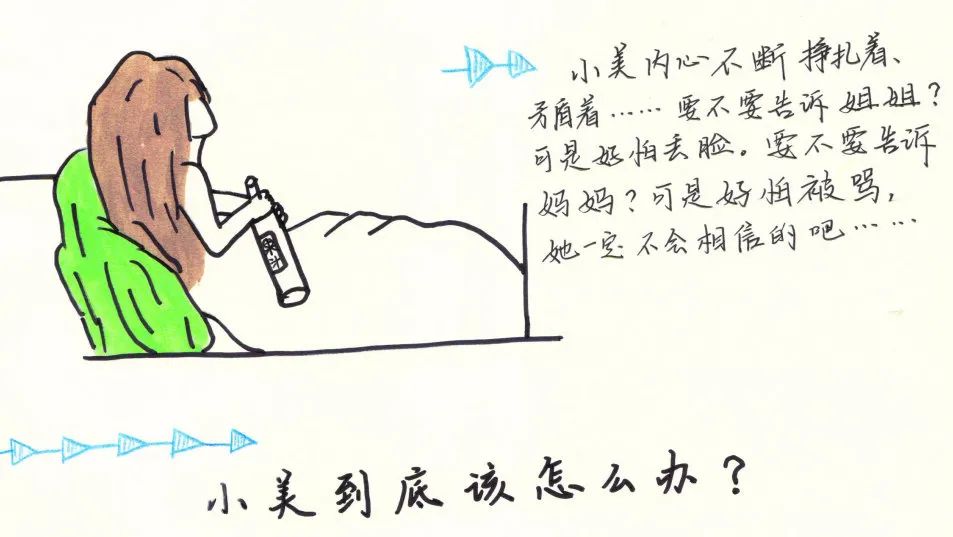 小美内心不断挣扎着、
矛盾着……要不要告诉姐姐?
可是好怕丢脸。要不要告诉
妈妈?可是好怕被骂,
她一定不会相信的吧……
小美到底该怎么办?